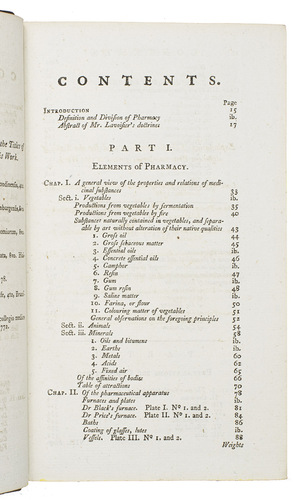 the Titles of
is Work.
78.
772.
CONTENTS.
Page
INTRODUCTION 15
Definition and Division of Pharmacy ib.
Abstract of Mr. Lavoisier's doctrines 17
PART I.
ELEMENTS OF PHARMACY.
CHAP. I. A general view of the properties and relations of medi-
cinal substances 33
Sect. i. Vegetables ib.
Productions from vegetables by fermentation 35
Productions from vegetables by fire 40
Substances naturally contained in vegetables, and separ-
able by art without alteration of their native qualities 43
1. Gross oil 44
2. Gross sebaceous matter 45
3. Essential oils ib.
4. Concrete essential oils 46
5. Camphor ib.
6. Resin 47
7. Gum ib.
8. Gum resin 48
9. Saline matter ib.
10. Farina, or flour 50
11. Colouring matter of vegetables 51
General observations on the foregoing principles 52
Sect. ii. Animals 54
Sect. iii. Minerals 58
1. Oils and bitumens ib.
2. Earths ib.
3. Metals 60
4. Acids 62
5. Fixed air 65
Of the affinities of bodies 66
Table of attractions 70
CHAP. II. Of the pharmaceutical apparatus 78
Furnaces and plates ib.
Dr Black's furnace. Plate I. Nº 1. and 2. 81
Dr Price's furnace. Plate II. Nº 1. and 2. 84
Baths 86
Coating of glasses, lutes ib.
Vessels. Plate III. Nº 1. and 2. 88
Weights